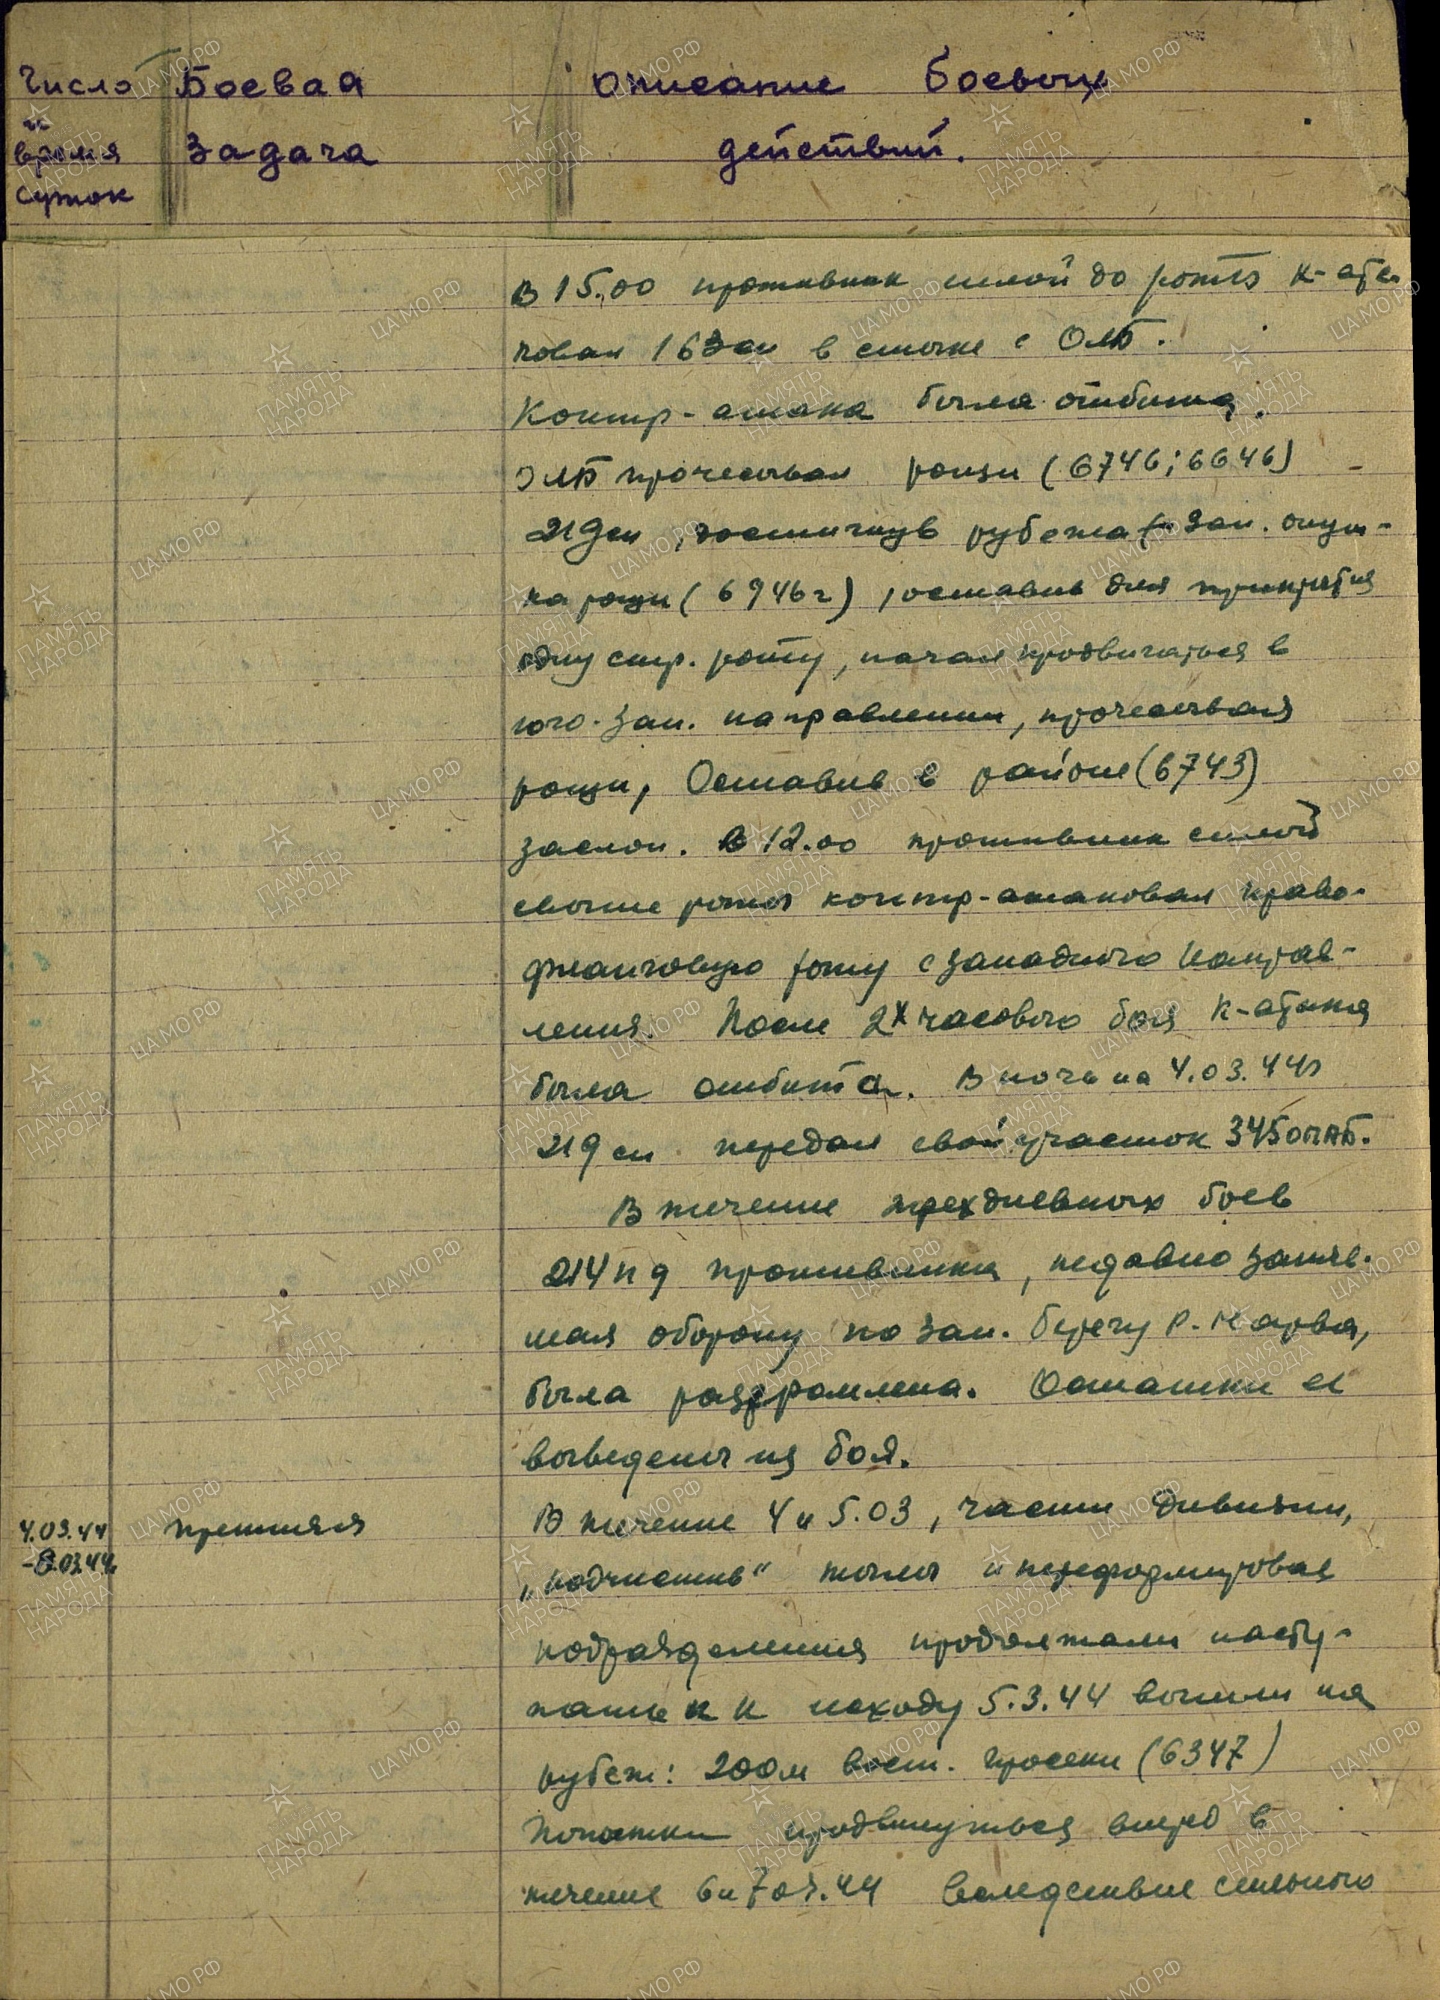 Число Боевая Описание боевых
и
время задача действий.
суток
В 15.00 противник силой до роты к-ата
ковал 163сп в стыке с ОЛБ.
Контр-атака была отбита.
ОЛБ прочесывал рощи (6746; 6646)
219сп, достигнув рубежа зап. опуш-
ка рощи (6946г), оставив для прикрытия
одну стр. роту, начал продвигаться в
юго-зап. направлении, прочесывая
рощи, Оставив в районе (6745)
заслон. В 12.00 противник силой
свыше роты контр-атаковал право-
фланговую роту с западного направ-
ления. После 2х часового боя к-атака
была отбита. В ночь на 4.03.44г
219 сп передал свой участок 345ОПАБ.
В течение трехдневных боев
214пд противника, недавно заняв-
шая оборону по зап. берегу р. Нарва,
была разгромлена. Остатки ее
выведены из боя.
4.03.44 прежняя В течение 4 и 5.03, части дивизии,
-8.03.44 „подчистив" тылы и переформировав
подразделения продолжали насту-
пать и к исходу 5.3.44 вышли на
рубеж: 200м вост. просеки (6347)
Попытки продвинуться вперед в
течение 6 и 7.03.44 вследствие сильного